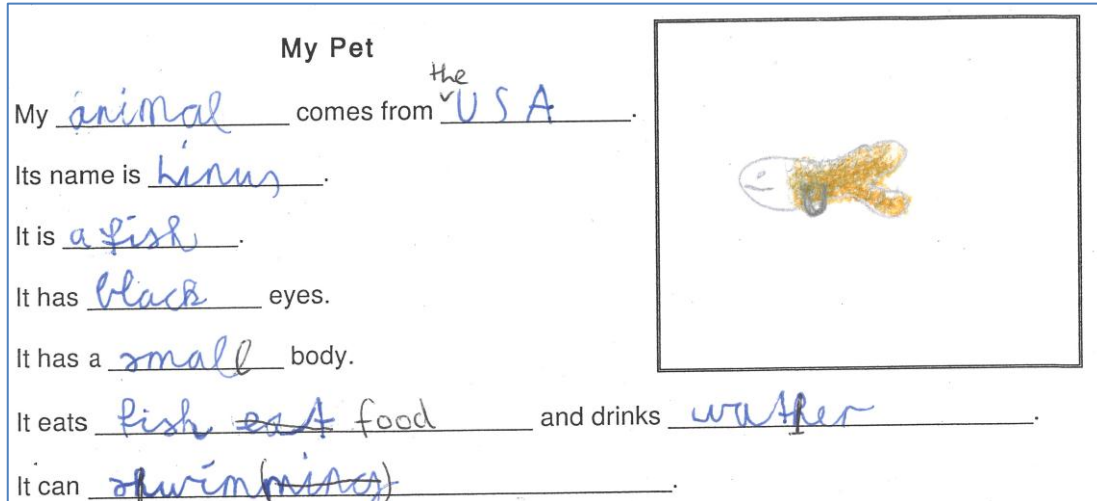 My Pet
My animal comes from the USA.
Its name is Linus.
It is a fish.
It has black eyes.
It has a small body.
It eats fish eat food and drinks wather.
It can shwim(ming).